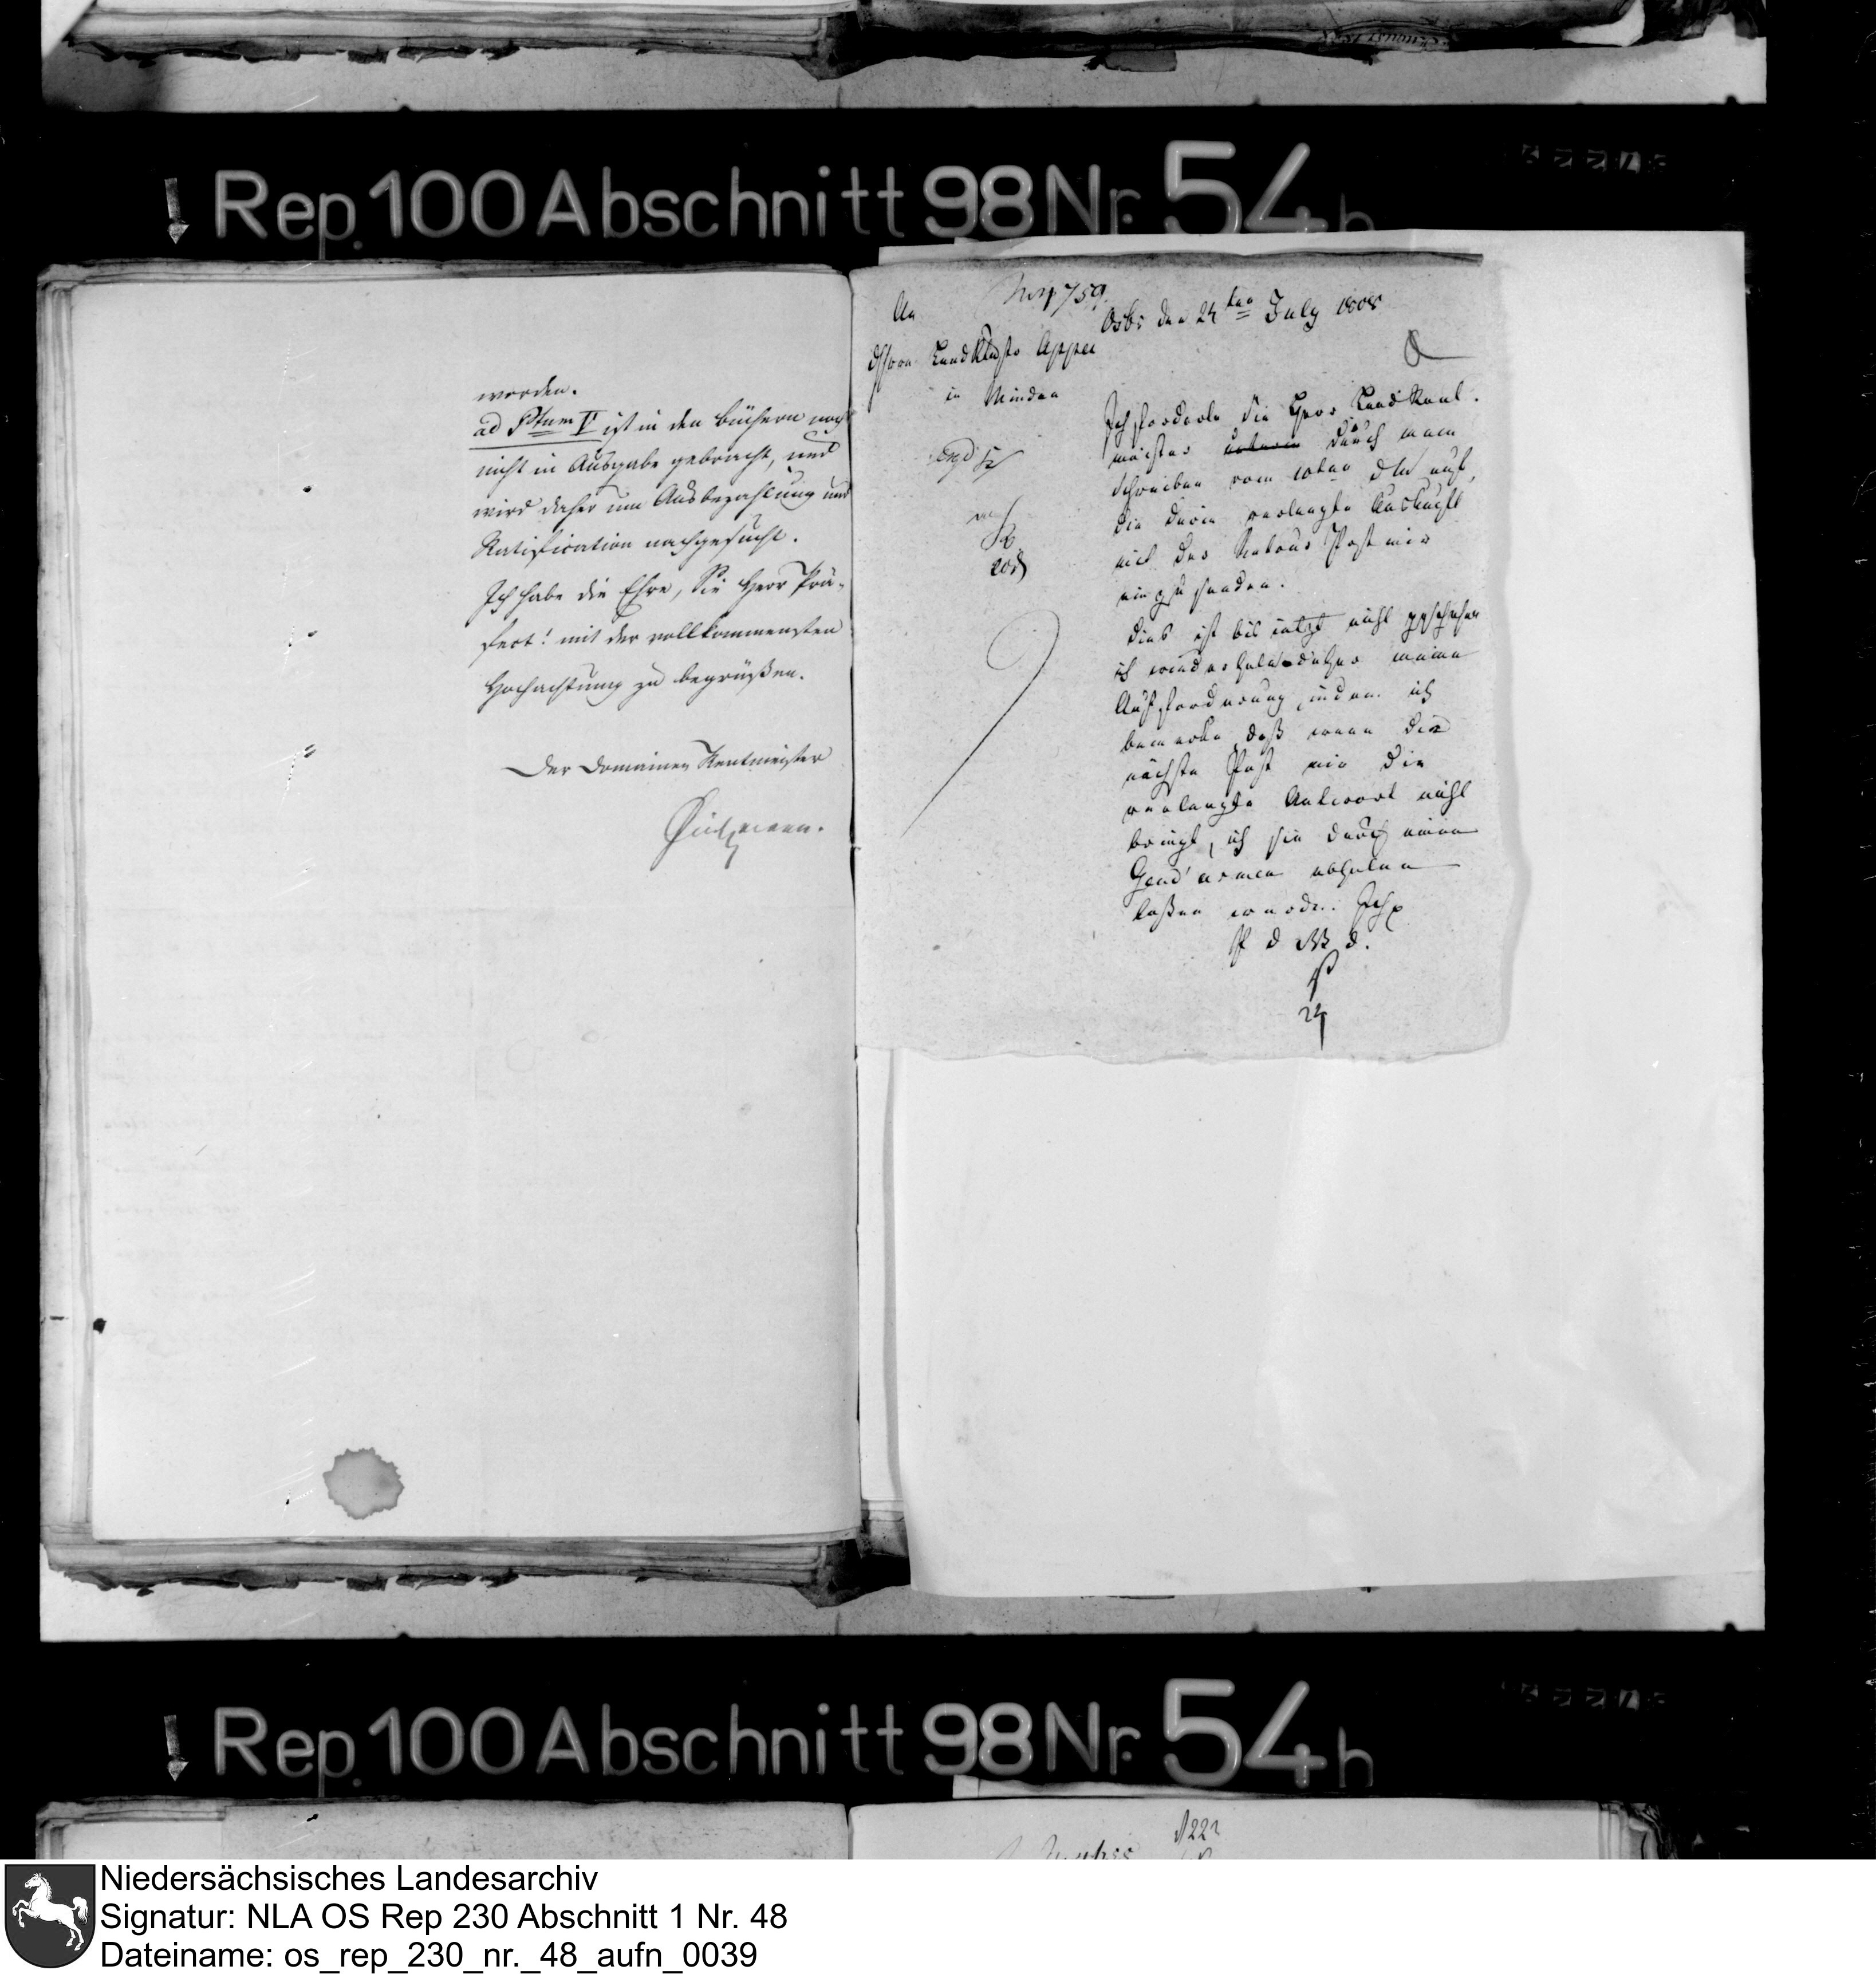 Rep. 100 Abschnitt 98 Nr. 54 h
worden.
ad Ptum V ist in den Büchern noch
nicht in Ausgabe gebracht, und
wird daher um Ausbezahlung und
Ratification nachgesucht.
Ich habe die Ehre, Sie Herr Prä-
fect! mit der vollkommensten
Hochachtung zu begrüßen.
Der Domainen Rentmeister
759
Osbr den 24ten July 1808
An
Herrn
in Minden
Ich forderte Sie Herr Land Rent-
meister durch mein
Schreiben vom 10ten auf,
die darin verlangte Auskunft
mit der Retour Post mir
einzusenden.
Dies ist bis jetzt nicht geschehen
ich wiederhole daher meine
Aufforderung indem ich
bemerke daß wenn die
nächste Post mir die
verlangte Antwort nicht
bringt, ich sie durch einen
Gend'armen abholen
laßen werde. Ich
P d W D.
24
Rep. 100 Abschnitt 98 Nr. 54 h
Niedersächsisches Landesarchiv
Signatur: NLA OS Rep 230 Abschnitt 1 Nr. 48
Dateiname: os_rep_230_nr._48_aufn_0039